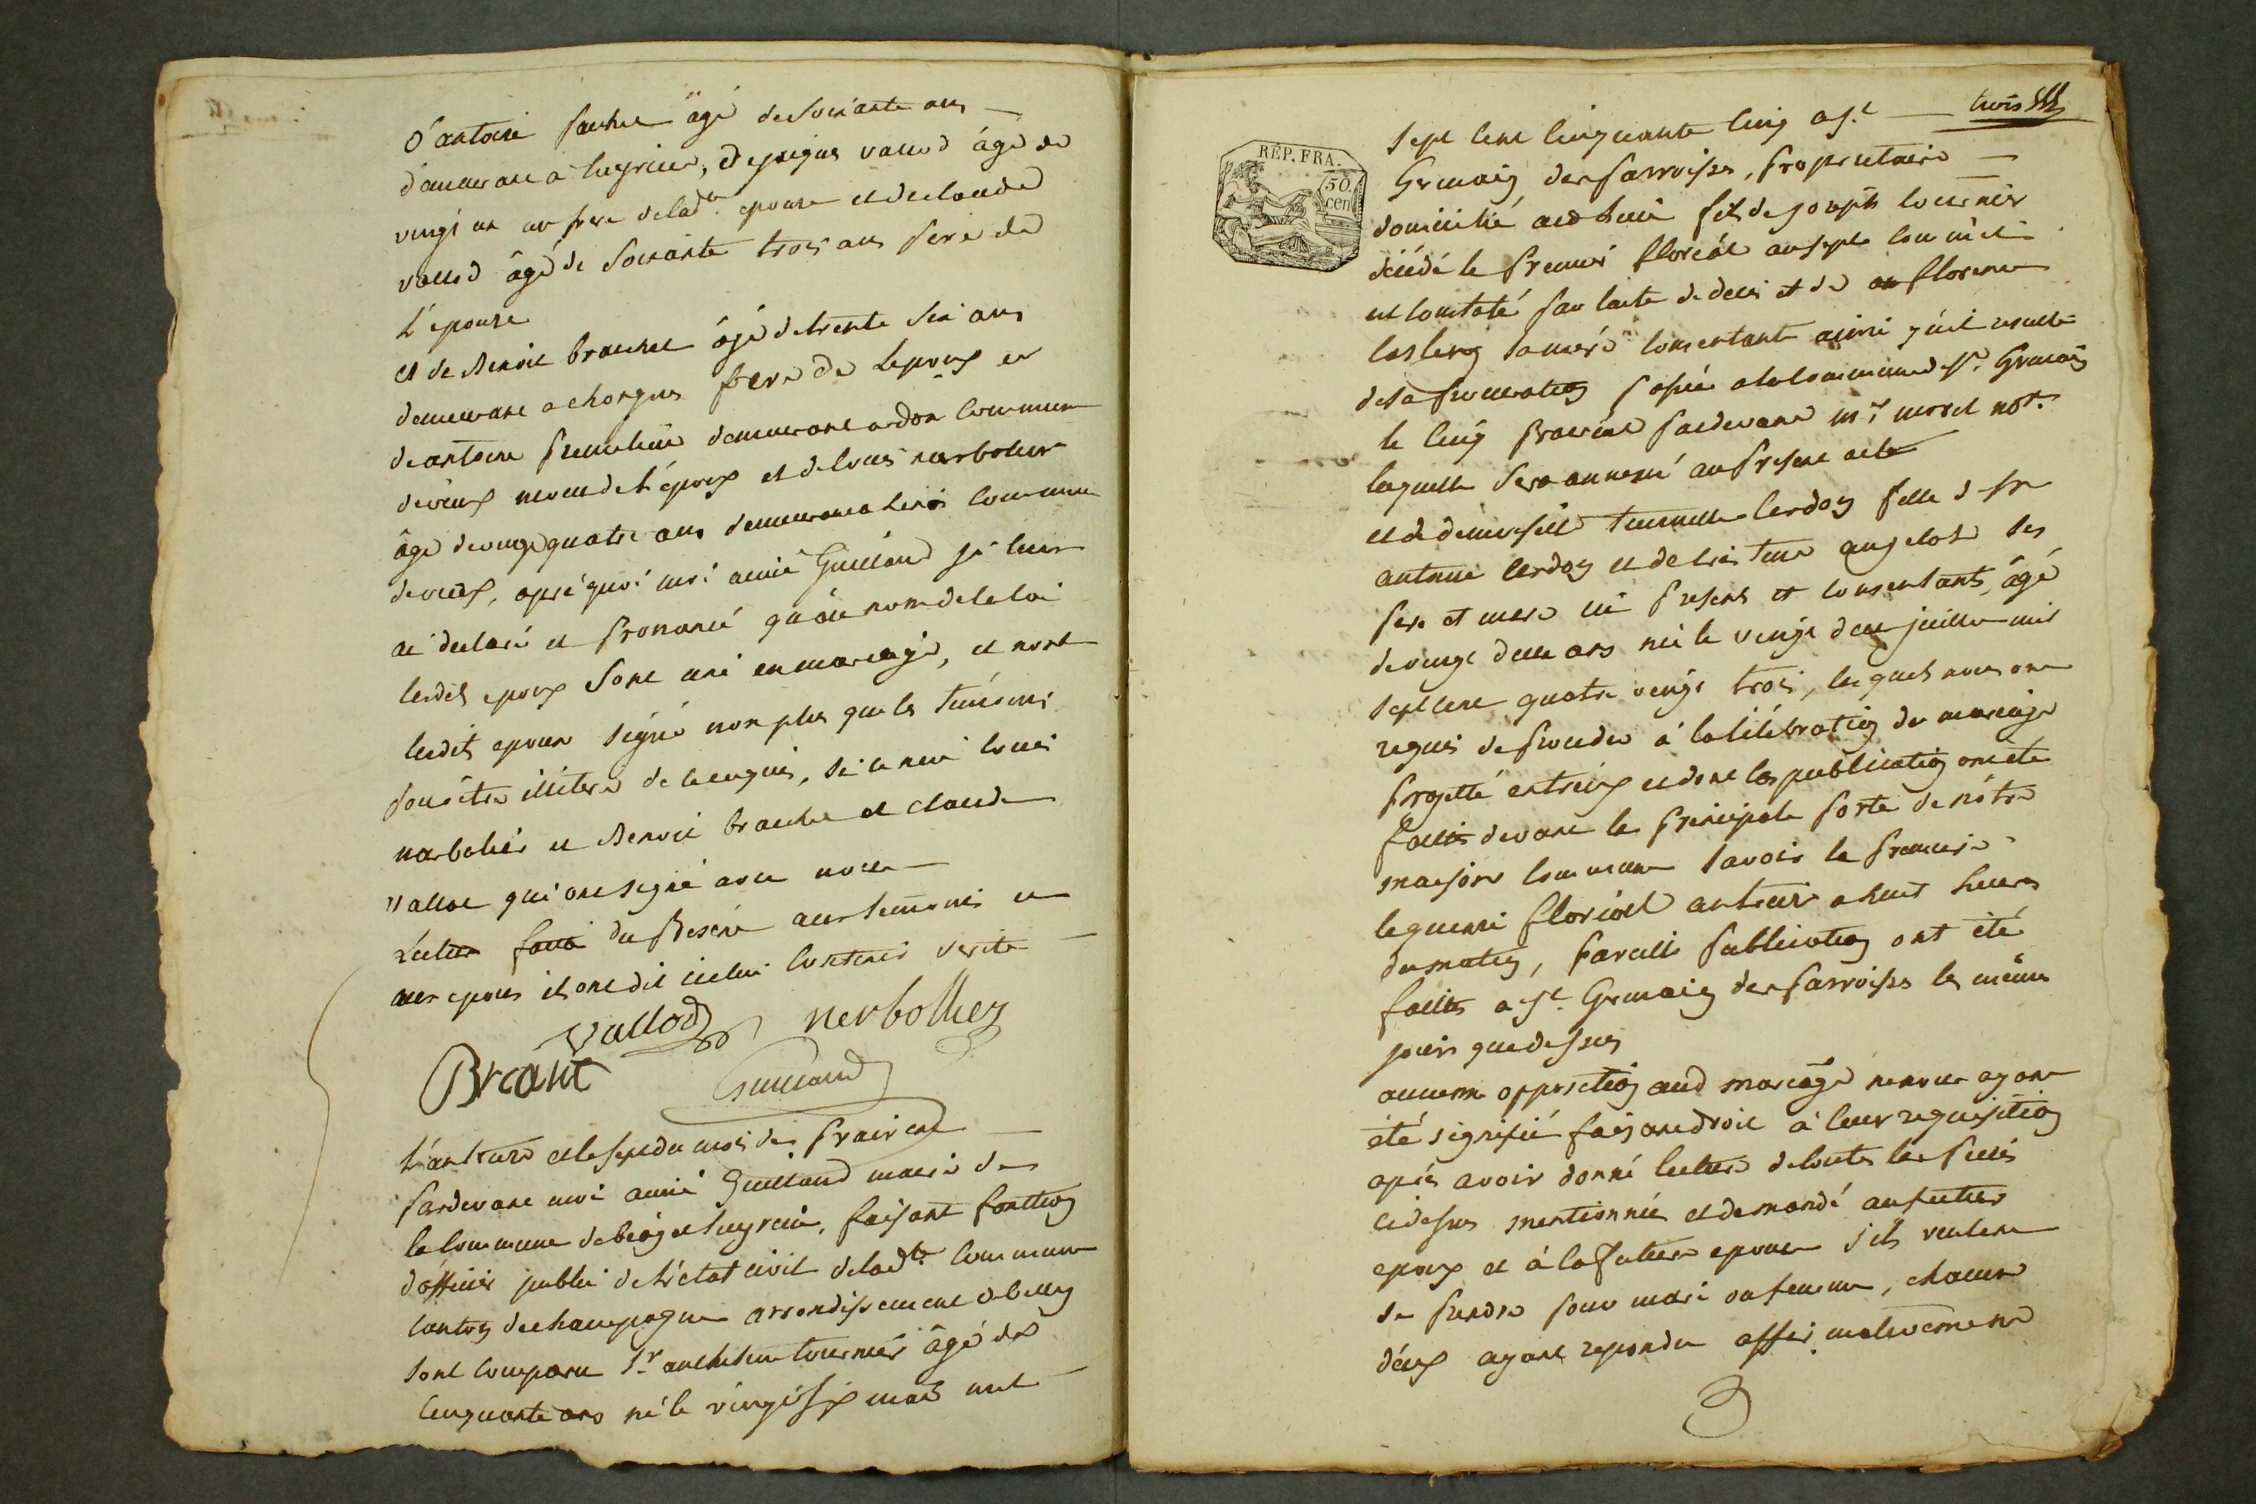 d'antoine âgé de soixante ans
demeurant a lugrieu, d'epoigni vallod âgé de
vingt un an frere de lad.te epouse et de claude
vallod âgé de soixante trois ans pere de
L'epouse
et de Benoit brachet âgé de trente six ans
demeurant a chorgnes frere de Lepoux et
de antoine demeurant a don commune
de vieux neveu de L'époux et de louis narbolier
âgé de vingt quatre ans demeurant a commune
de vieux, apré quoi moi aimé Guilland je leur
ai declaré et prononcé qu'au nom de la loi
lesdits epoux sont uni en mariage, et n'ont
lesdits epoux signé non plus que les temoins
pour être illiteré de ce enquis, si ce n'est louis
narbolier et Benoit brachet et claude
vallod qui ont signé avec nous
Lecture faite du present aux temoins et
aux epoux ils ont dit icelui contenir verité
vallod nerbollier
Bracut Guilland
L'an treize et le sept du mois de prairial
pardevant moi aimé Guilland maire de
la commune de béog et lugrieu, faisant fonction
d'officier public de l'état civil de lad.te commune
canton de champagne arrondissement de belley
sont comparu S.r anthelme tournier âgé de
cinquante ans né le vingt six mai mil
trois
RÉP. FRA.
50 cen
sept cent cinquante cinq a St.
Germain des parroisses, proprietaire
domicilié aud lieu fils de joseph tournier
décédé le premier floréal an sept comme il
est constaté par lacte de deces et de florence
sa mere consentante ainsi qu'il resulte
de sa procuration passée a la commune de St. Germain
le cinq prairial pardevant m.e morel not.
laquelle sera annexé au present acte
et de demoiselle cerdon fille de sr
antoine cerdon et de cristine angelot ses
pere et mere ici presents et consentants, âgé
de vingt deux ans née le vingt deux juillet mil
sept cent quatre vingt trois, lesquels nous ont
requis de proceder à la célébration du mariage
projetté entreux et dont les publication ont été
faites devant la principale porte de nôtre
maison commune savoir la premiere
le quinze floréal an treize a huit heures
du matin, pareille publication ont été
faites a St. Germain des parroisses les même
jours que dessus
aucune opposition aud mariage ne nous ayant
été signifié faisant droit à leur requisition
après avoir donné lecture de toutes les pieces
cidessus mentionnée et demandé au futur
epoux et à la future epouse s'ils veulent
se prendre pour mari ou femme, chacun
d'eux ayant repondu affirmativement